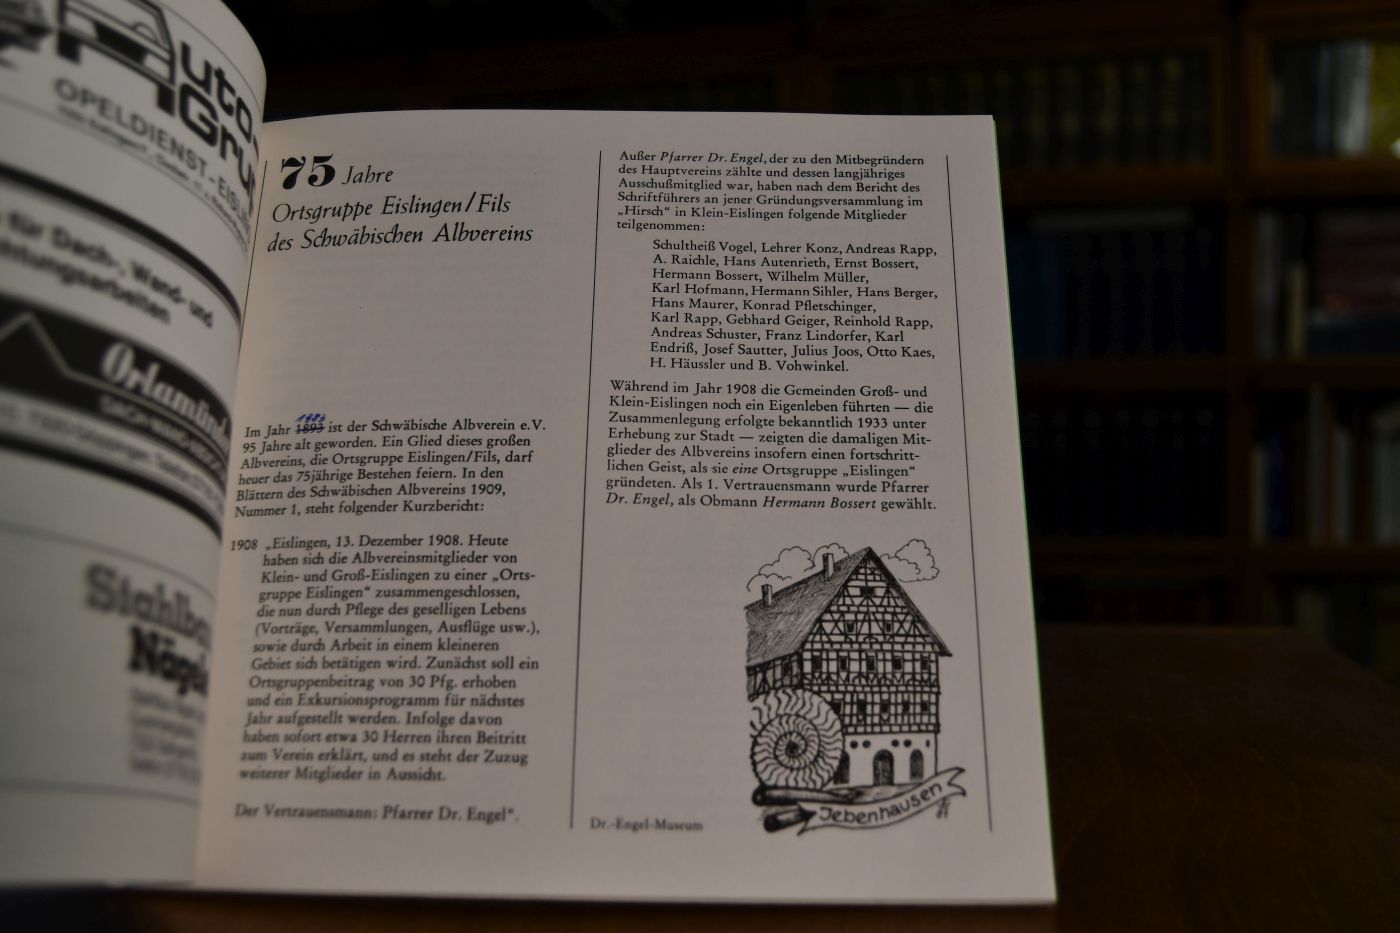 Auto-
Gru
OPELDIENST - EISLIN
für Dach-, Wand- und
Orlamünd
Stahlba
Nägel
75 Jahre
Ortsgruppe Eislingen/Fils
des Schwäbischen Albvereins
1983
Im Jahr 1893 ist der Schwäbische Albverein e.V.
95 Jahre alt geworden. Ein Glied dieses großen
Albvereins, die Ortsgruppe Eislingen/Fils, darf
heuer das 75jährige Bestehen feiern. In den
Blättern des Schwäbischen Albvereins 1909,
Nummer 1, steht folgender Kurzbericht:
1908 „Eislingen, 13. Dezember 1908. Heute
haben sich die Albvereinsmitglieder von
Klein- und Groß-Eislingen zu einer „Orts-
gruppe Eislingen“ zusammengeschlossen,
die nun durch Pflege des geselligen Lebens
(Vorträge, Versammlungen, Ausflüge usw.),
sowie durch Arbeit in einem kleineren
Gebiet sich betätigen wird. Zunächst soll ein
Ortsgruppenbeitrag von 30 Pfg. erhoben
und ein Exkursionsprogramm für nächstes
Jahr aufgestellt werden. Infolge davon
haben sofort etwa 30 Herren ihren Beitritt
zum Verein erklärt, und es steht der Zuzug
weiterer Mitglieder in Aussicht.
Der Vertrauensmann: Pfarrer Dr. Engel“.
Außer Pfarrer Dr. Engel, der zu den Mitbegründern
des Hauptvereins zählte und dessen langjähriges
Ausschußmitglied war, haben nach dem Bericht des
Schriftführers an jener Gründungsversammlung im
„Hirsch“ in Klein-Eislingen folgende Mitglieder
teilgenommen:
Schultheiß Vogel, Lehrer Konz, Andreas Rapp,
A. Raichle, Hans Autenrieth, Ernst Bossert,
Hermann Bossert, Wilhelm Müller,
Karl Hofmann, Hermann Sihler, Hans Berger,
Hans Maurer, Konrad Pfletschinger,
Karl Rapp, Gebhard Geiger, Reinhold Rapp,
Andreas Schuster, Franz Lindorfer, Karl
Endriß, Josef Sautter, Julius Joos, Otto Kaes,
H. Häussler und B. Vohwinkel.
Während im Jahr 1908 die Gemeinden Groß- und
Klein-Eislingen noch ein Eigenleben führten — die
Zusammenlegung erfolgte bekanntlich 1933 unter
Erhebung zur Stadt — zeigten die damaligen Mit-
glieder des Albvereins insofern einen fortschritt-
lichen Geist, als sie eine Ortsgruppe „Eislingen“
gründeten. Als 1. Vertrauensmann wurde Pfarrer
Dr. Engel, als Obmann Hermann Bossert gewählt.
Jebenhausen
Dr.-Engel-Museum